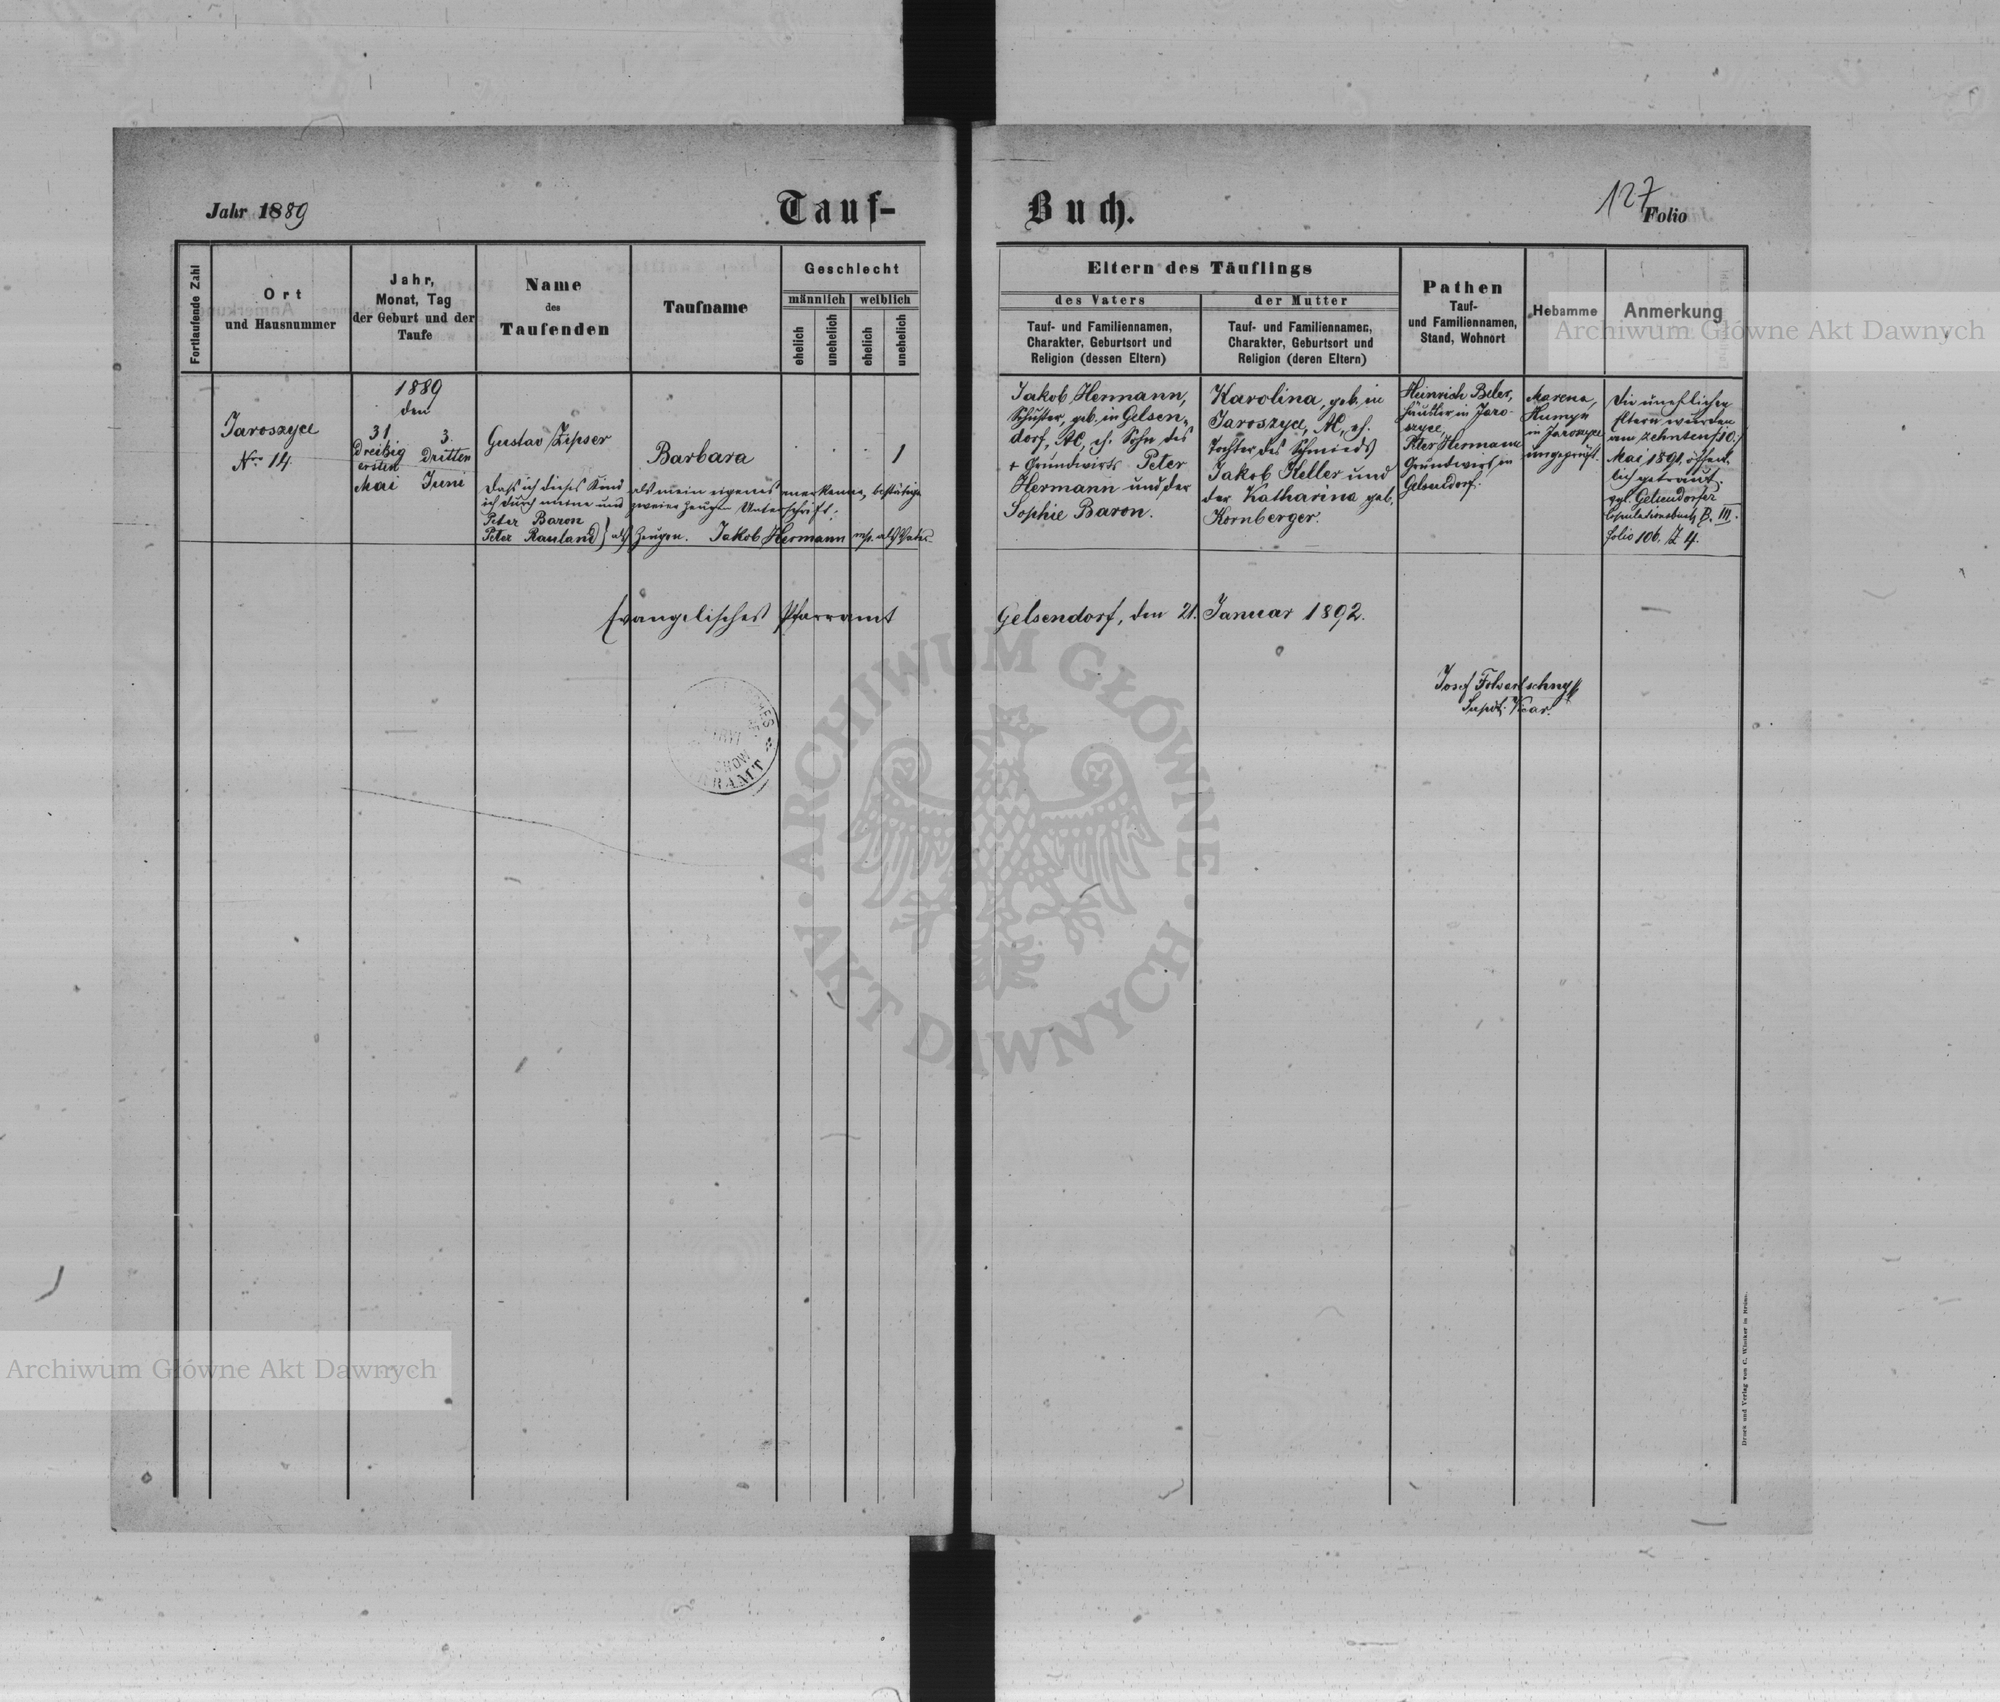 Jahr 1889
Tauf-
Buch.
127
Folio
Fortlaufende Zahl
Ort
und Hausnummer
Jahr,
Monat, Tag
der Geburt und der
Taufe
Name
des
Taufenden
Taufname
Geschlecht
männlich
weiblich
ehelich
unehelich
ehelich
unehelich
Eltern des Täuflings
des Vaters
Tauf- und Familiennamen,
Charakter, Geburtsort und
Religion (dessen Eltern)
der Mutter
Tauf- und Familiennamen,
Charakter, Geburtsort und
Religion (deren Eltern)
Pathen
Tauf-
und Familiennamen,
Stand, Wohnort
Hebamme
Anmerkung
Jaroszyce
Nro 14.
1889
den
31. 3.
Dreißig Dritten
ersten
Mai Juni
Gustav Zipser
Barbara
1
Daß ich dieses Kind als mein eigenes anerkenne, bestätige
ich durch meine und zweier Zeugen Unterschrift:
Peter Baron
Peter Rauland } als Zeugen. Jakob Hermann mp. als Vater.
Jakob Hermann,
Schuster, geb. in Gelsen-
dorf, AC, eh. Sohn des
+ Grundwirts Peter
Hermann und der
Sophie Baron.
Karolina, geb. in
Jaroszyce, AC, eh.
Tochter des Schmieds
Jakob Keller und
der Katharina geb.
Kornberger.
Heinrich Beler,
Häusler in Jaro-
szyce,
Peter Hermann
Grundwirt in
Gelsendorf.
Marena
Humyn
in Jaroszyce
ungeprüft.
Die unehlichen
Eltern wurden
am zehnten (10.)
Mai 1891 öffent-
lich getraut.
vgl. Gelsendorfer
Copulationsbuch B. III.
folio 106. Z 4.
Evangelisches Pfarramt Gelsendorf, den 21. Januar 1892.
Josef Folwartschny
Vicar.
Druck und Verlag von C. Winiker in Brünn.
ARCHIWUM GŁÓWNE
AKT DAWNYCH
Archiwum Główne Akt Dawnych
Archiwum Główne Akt Dawnych